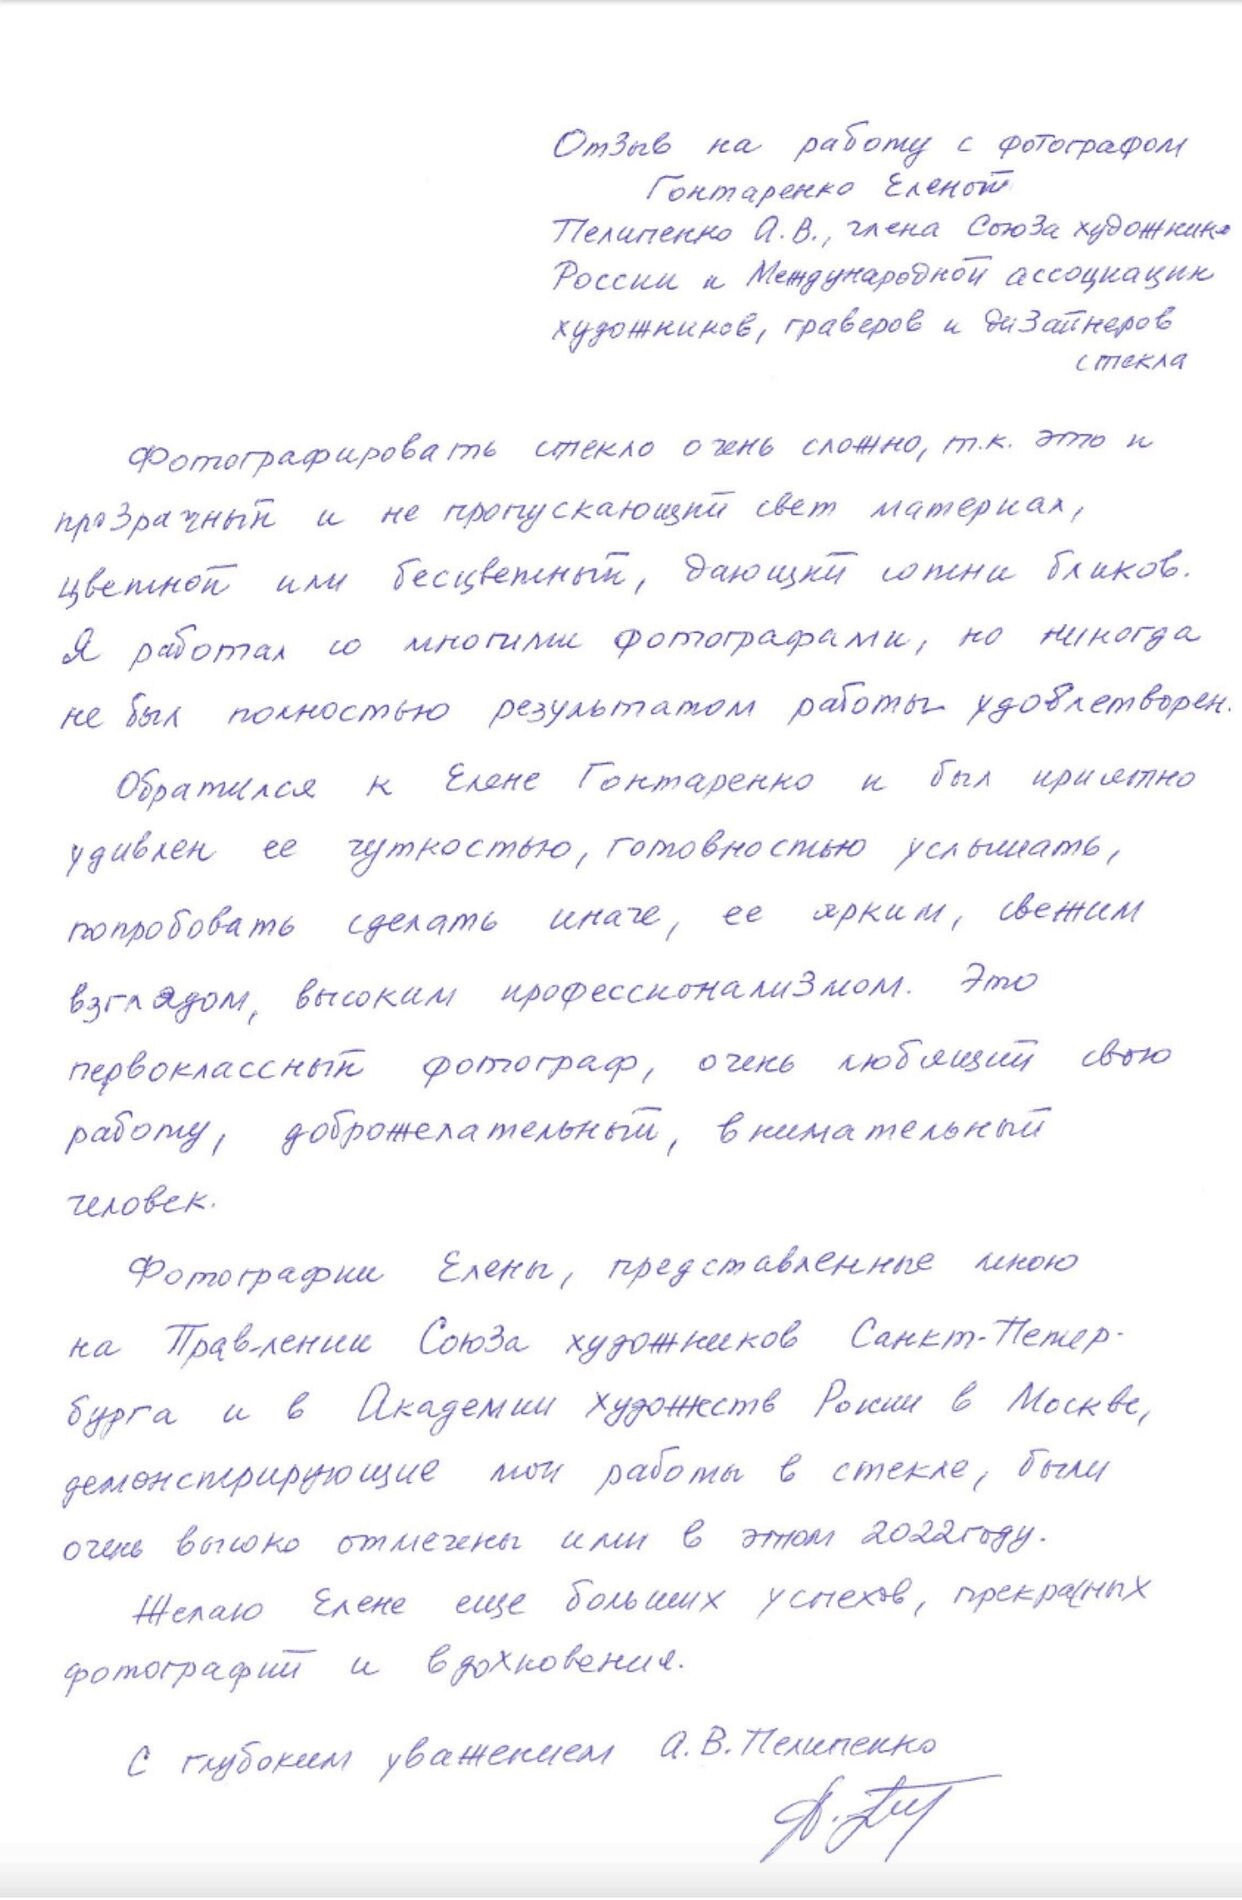 Отзыв на работу с фотографом
Гонтаренко Еленой
Пелипенко А.В., члена Союза художник
России и Международной ассоциации
художников, граверов и дизайнеров
стекла
Фотографировать стекло очень сложно, т.к. это и
прозрачный и не пропускающий свет материал,
цветной или бесцветный, дающий сотни бликов.
Я работал со многими фотографами, но никогда
не был полностью результатом работы удовлетворен.
Обратился к Елене Гонтаренко и был приятно
удивлен ее чуткостью, готовностью услышать,
попробовать сделать иначе, ее ярким, свежим
взглядом, высоким профессионализмом. Это
первоклассный фотограф, очень любящий свою
работу, доброжелательный, внимательный
человек.
Фотографии Елены, представленные мною
на Правлении Союза художников Санкт-Петер-
бурга и в Академии художеств России в Москве,
демонстрирующие мои работы в стекле, были
очень высоко отмечены ими в этом 2022году.
Желаю Елене еще больших успехов, прекрасных
фотографий и вдохновения.
С глубоким уважением А.В.Пелипенко